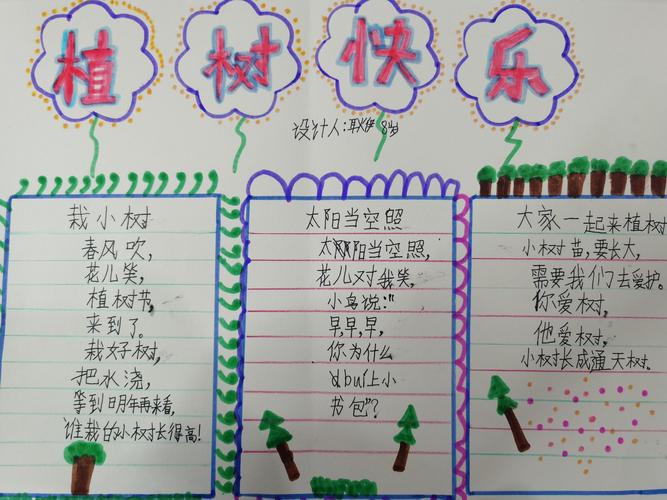 植树快乐
设计人: 8岁
栽小树
春风吹,
花儿笑,
植树节,
来到了。
栽好树,
把水浇,
等到明年再来看,
谁栽的小树长得高!
太阳当空照
太阳当空照,
花儿对我笑,
小鸟说:"
早,早,早,
你为什么
上小
书包"?
大家一起来植树
小树苗,要长大,
需要我们去爱护。
你爱树,
他爱树,
小树长成通天树.